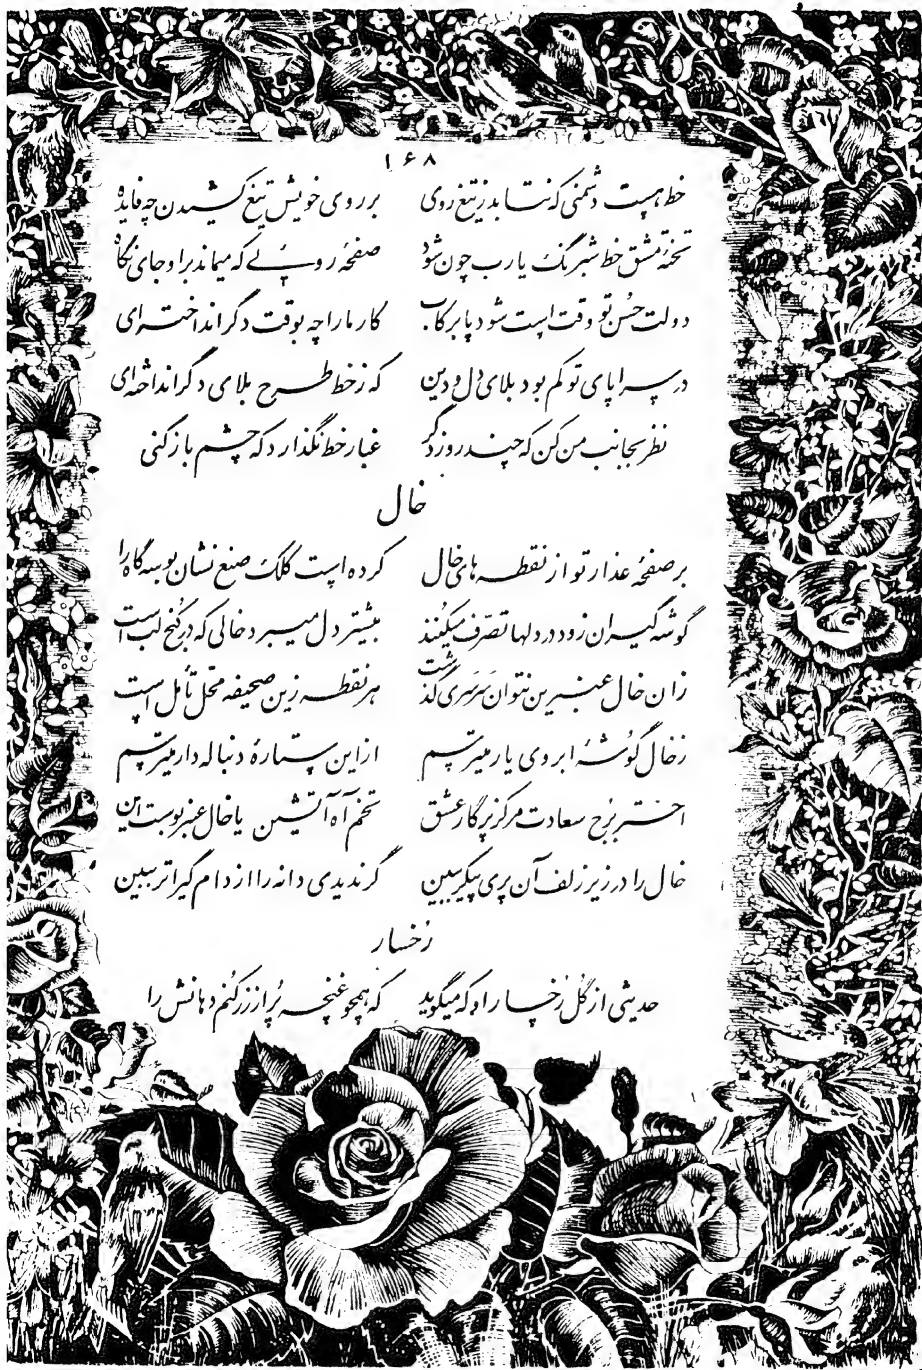 ۱۶۸
خط هست دشمنی که نتابد ز تیغ روی    بر روی خویش تیغ کشیدن چه فایده
تختهٔ مشق خط شبرنگ یارب چون شود    صفحهٔ رویی که میماند براو جای نگاه
دولت حُسن تو وقت است شود پا برکاب.    کار ما را چه بوقت دگر انداخته‌ای
در سراپای تو کم بود بلای دل و دین    که ز خط طرح بلای دگر انداخته‌ای
نظر بجانب من کن که چند روز دگر    غبار خط نگذارد که چشم باز کنی
خال
بر صفحهٔ عذار تو از نقطه‌های خال    کرده است کلک صنع نشان بوسه گاه را
گوشه گیران زود در دلها تصرّف میکنند    بیشتر دل میبرد خالی که در کُنج لب است
زان خال عنبرین نتوان سَرسَری گذشت    هر نقطه زین صحیفه محل تأمل است
ز خال گوُشهٔ ابروی یار میترسم    از این ستارهٔ دنباله دار میترسم
اختر بُرج سعادت مرکز پرگار عشق    تخم آه آتشین یا خال عنبر بوست این
خال را در زیر زلف آن پری پیکر ببین    گر ندیدی دانه را از دام گیراتر ببین
رُخسار
حدیثی از گُل رُخسار او که میگوید    که همچو غنچه پُر از زر کنم دهانش را